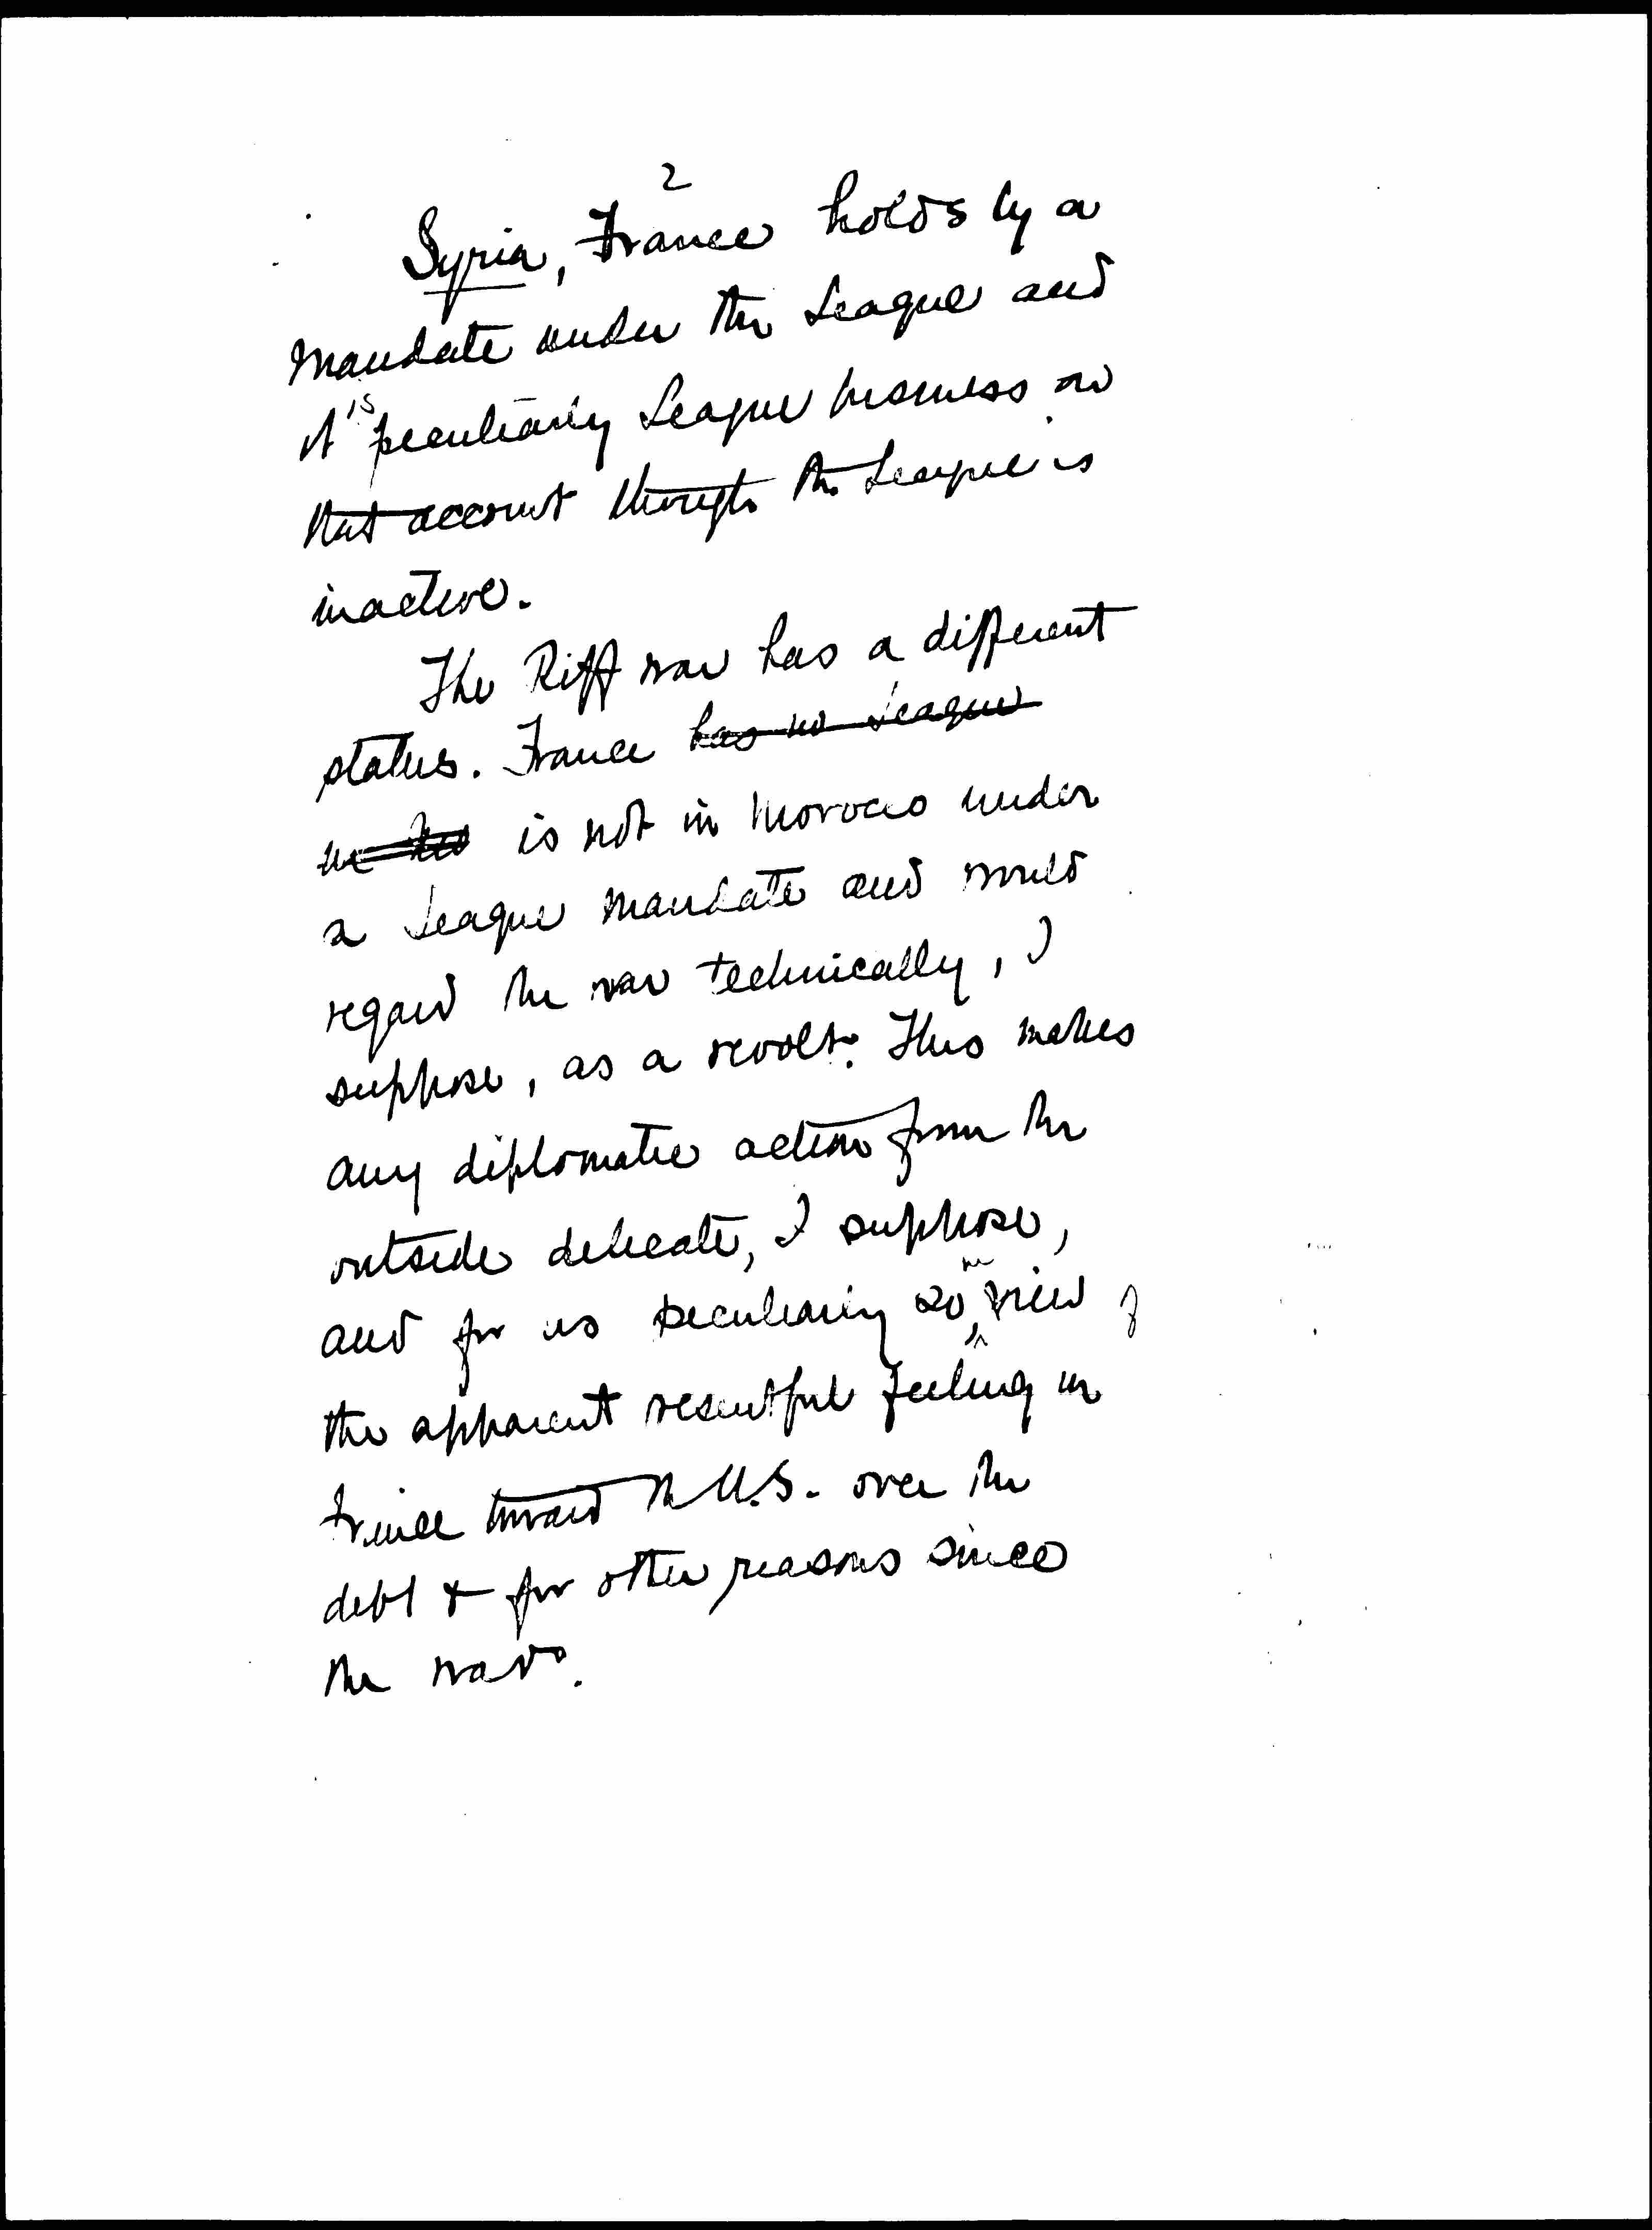 2
Syria, France holds by a
mandate under the League and
it is peculiarly League business on
that account though the League is
inactive.
The Riff war has a different
status. France has no League
is not in Morocco under
a League mandate and would
regard the war technically, I
suppose, as a revolt. This makes
any diplomatic action from the
outside delicate, I suppose,
and for us peculiarly so in view of
the apparent resentful feeling in
France toward the U.S. over the
debt & for other reasons since
the war.